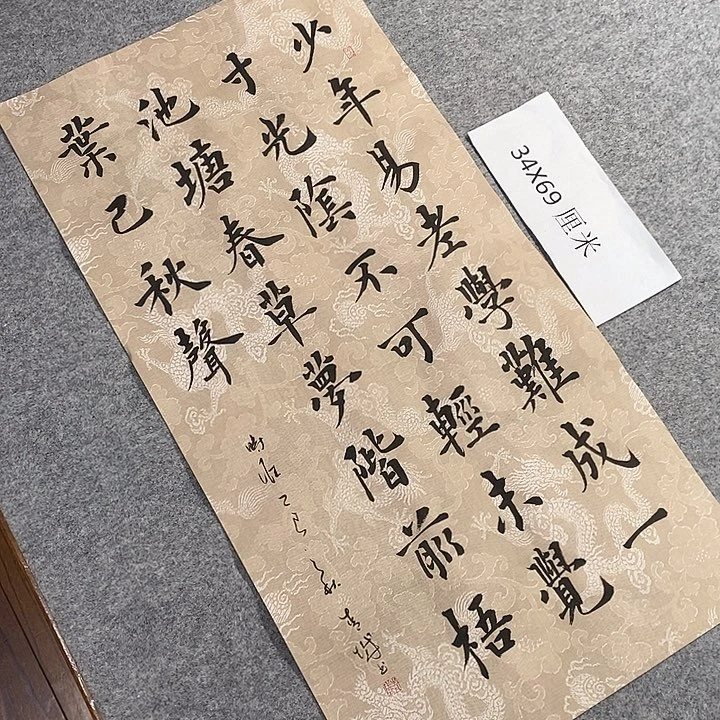 少年易老學難成一
寸光陰不可輕未覺
池塘春草夢階前梧
葉已秋聲
時在乙巳之秋
34X69厘米